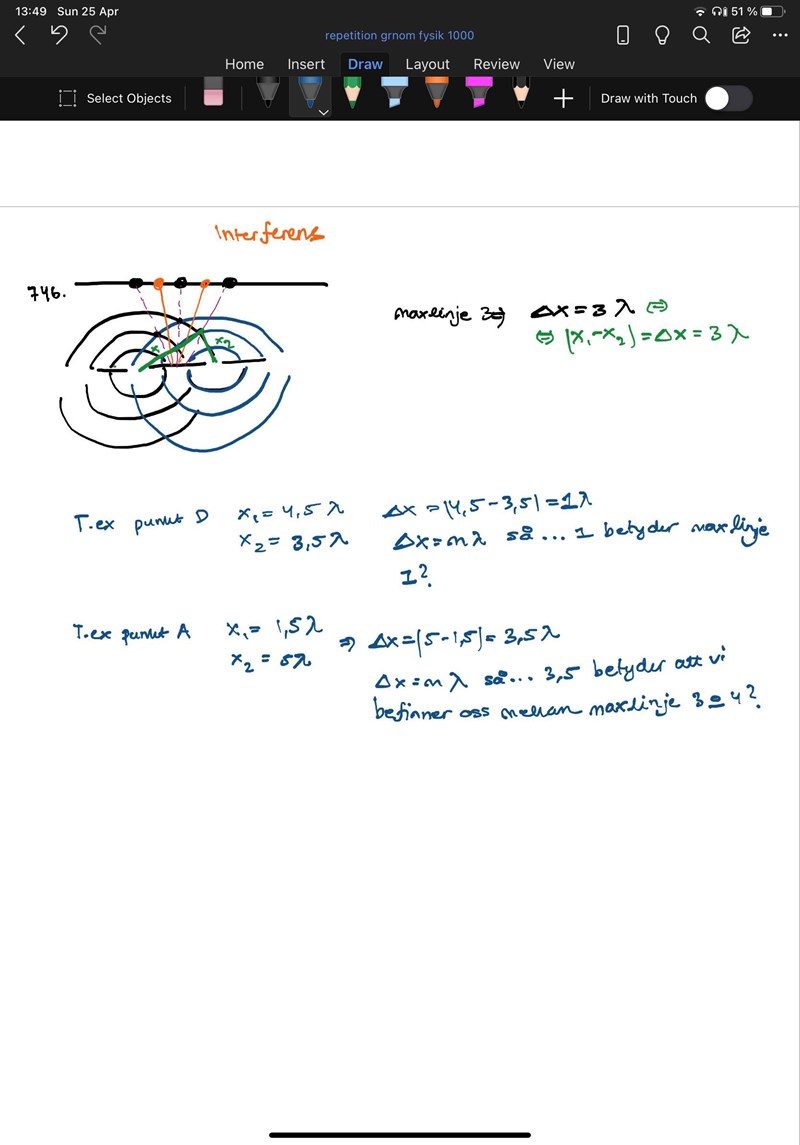 13:49 Sun 25 Apr 51 %
repetition grnom fysik 1000
Home Insert Draw Layout Review View
Select Objects Draw with Touch
Interferens
746.
maxlinje 3 ⇒ Δx = 3 λ ⇔
⇔ |x₁-x₂| = Δx = 3 λ
x x₂
T.ex punkt D x₁ = 4,5 λ Δx = |4,5 - 3,5| = 1λ
x₂ = 3,5 λ Δx = mλ så... 1 betyder maxlinje
1?
T.ex punkt A x₁ = 1,5 λ ⇒ Δx = |5 - 1,5| = 3,5 λ
x₂ = 5λ
Δx = m λ så... 3,5 betyder att vi
befinner oss mellan maxlinje 3 o 4?